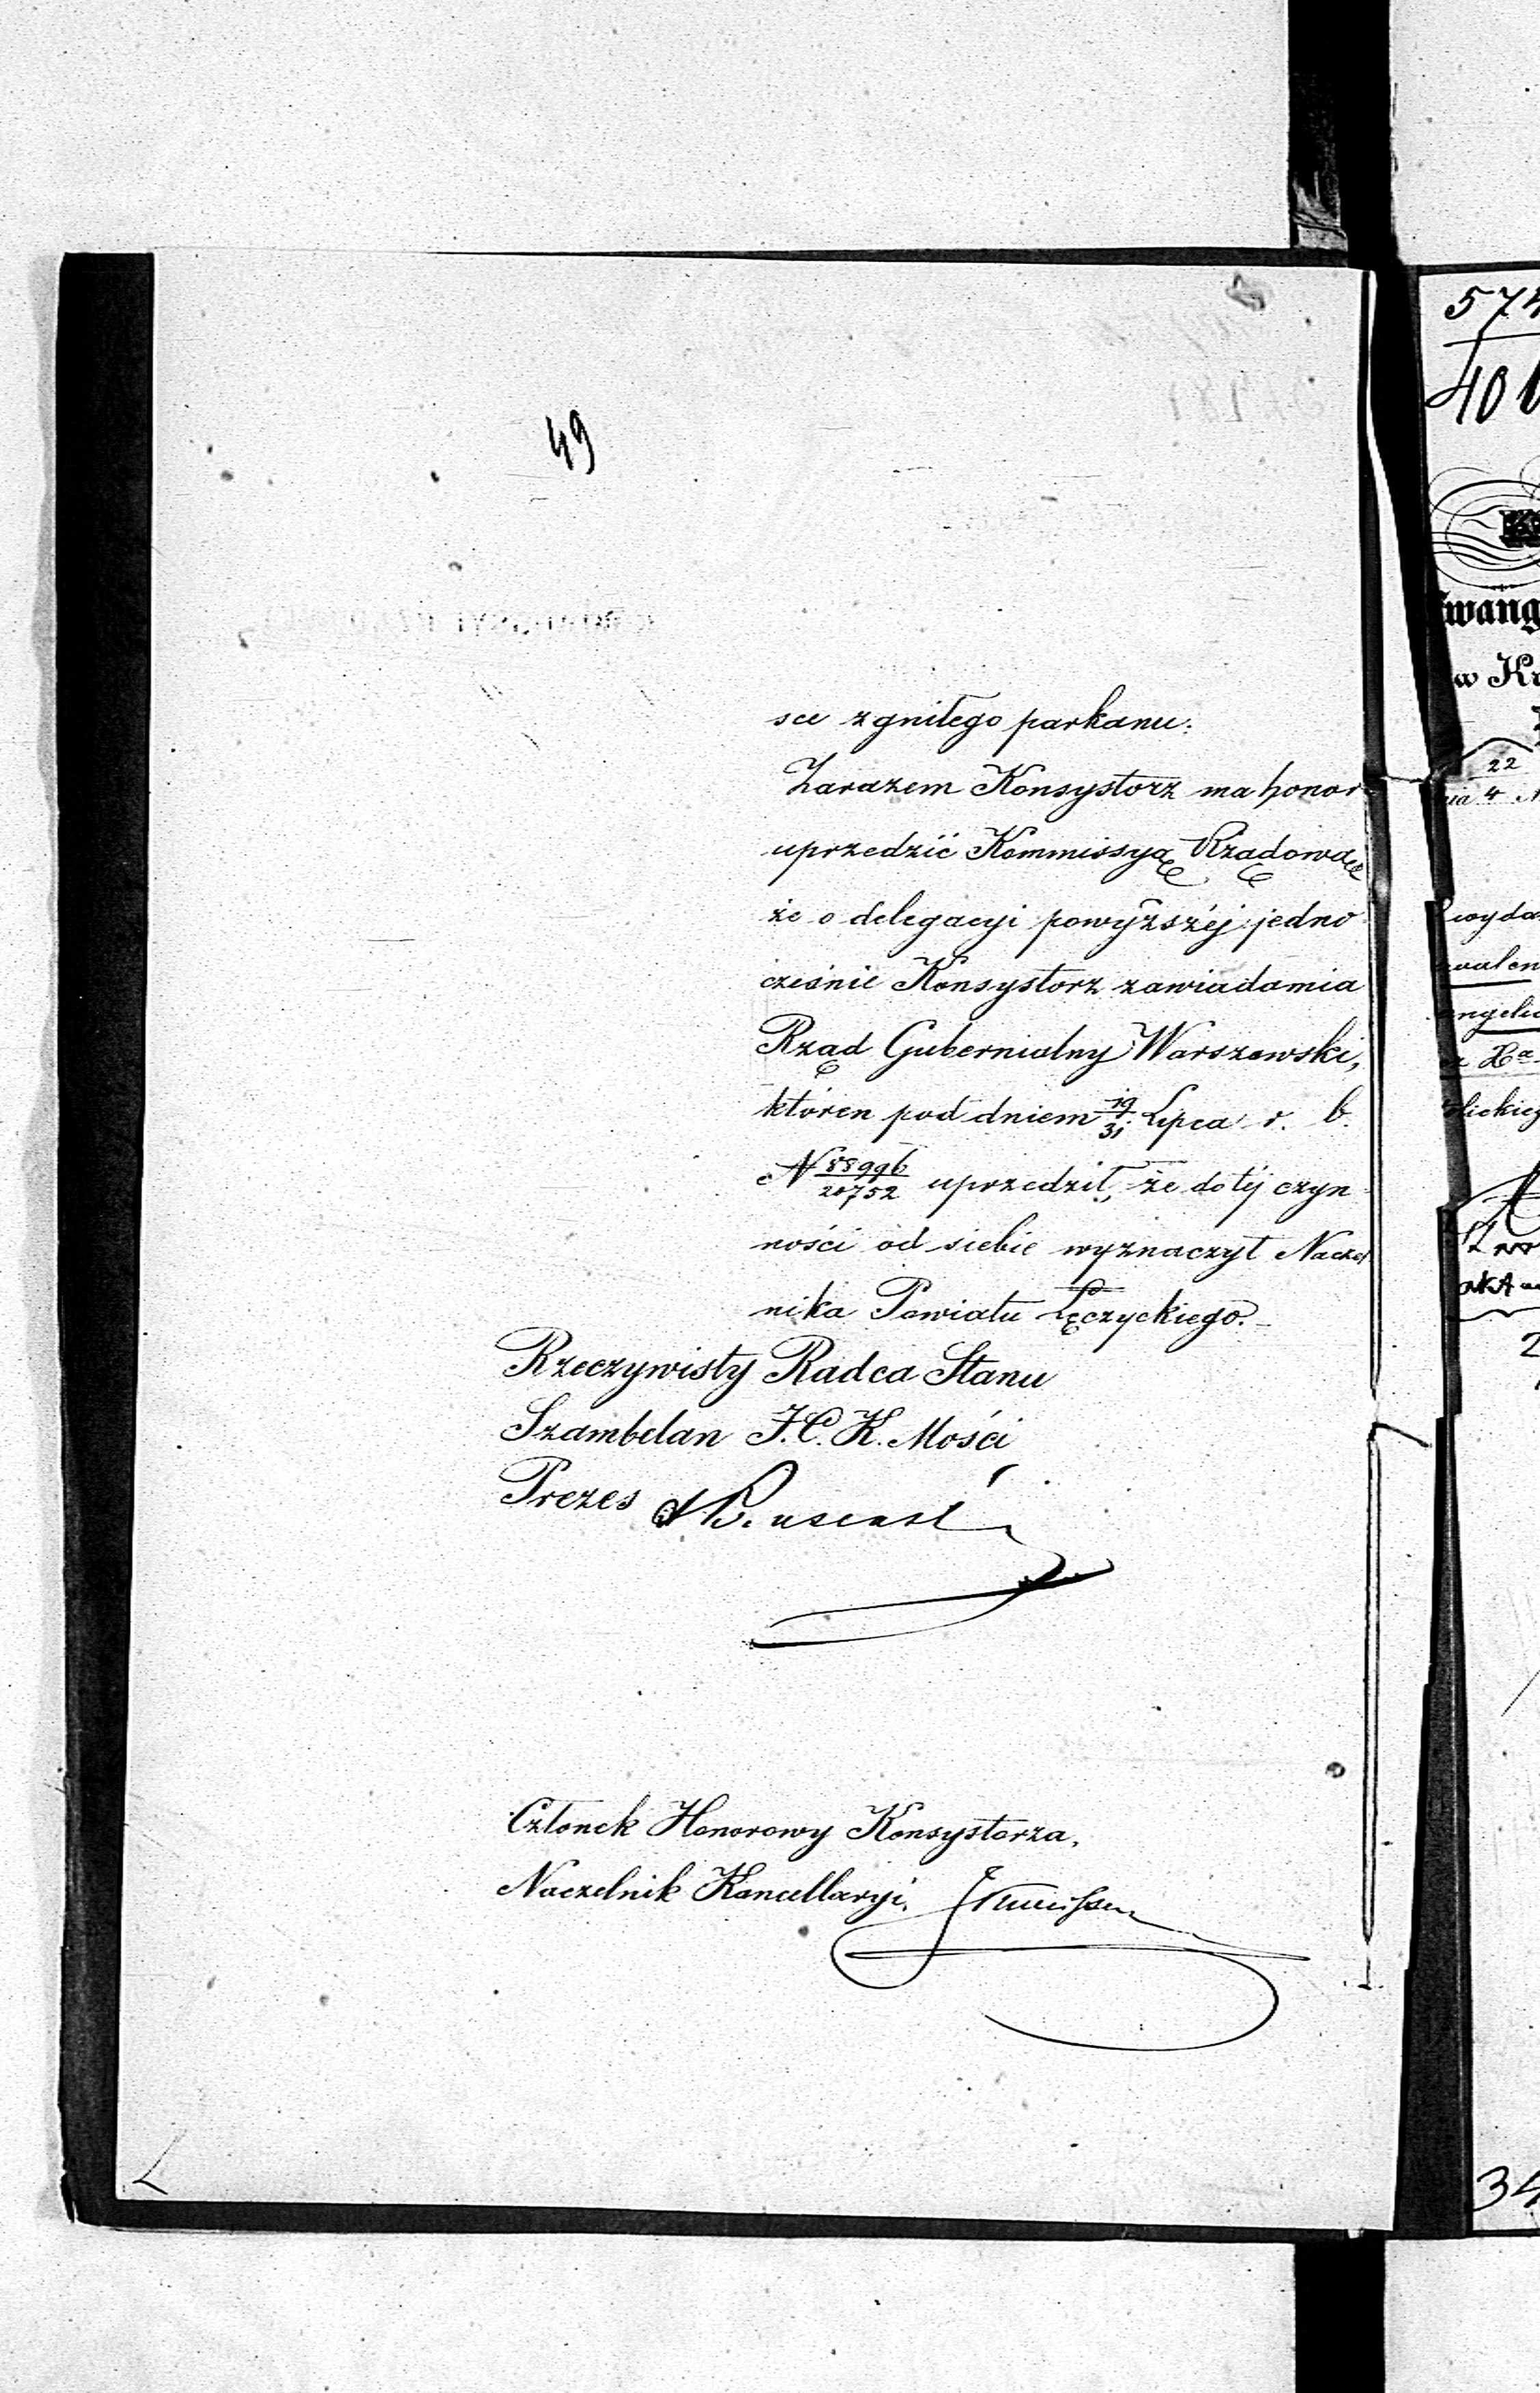 49
sce zgniłego parkanu.
Zarazem Konsystorz ma honor
uprzedzić Kommissyą Rządową
że o delegacyi powyższéj jedno
cześnie Konsystorz zawiadamia
Rząd Gubernialny Warszawski,
któren pod dniem 19/31 Lipca r. b.
N 88996/20752 uprzedził, że do téj czyn
ności od siebie wyznaczył Naczel
nika Powiatu Łęczyckiego.
Rzeczywisty Radca Stanu
Szambelan J. C. K. Mości
Prezes
Członek Honorowy Konsystorza,
Naczelnik Kancellaryi,
574
40
wang
w Kr
22
nia 4 N
wyda
walen
angelic
olickieg
akt
34